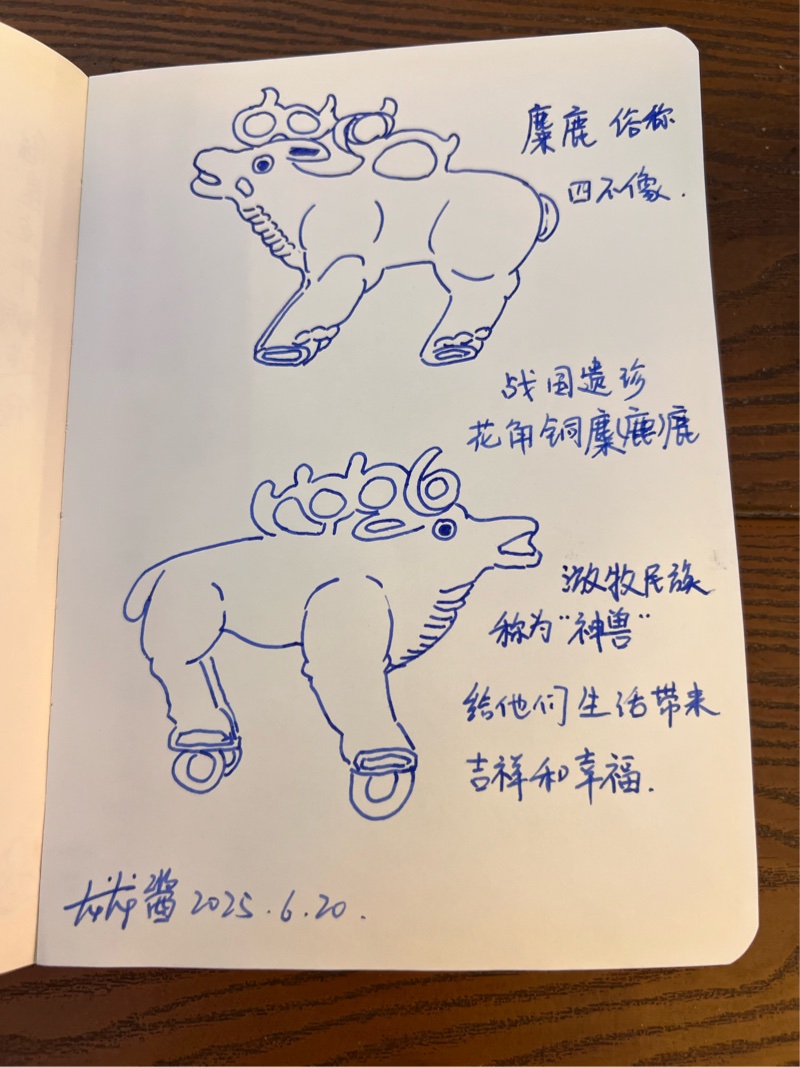 麋鹿 俗称
四不像.
战国遗珍
花角铜麋(鹿)鹿
游牧民族
称为"神兽"
给他们生活带来
吉祥和幸福.
龙龙酱 2025.6.20.